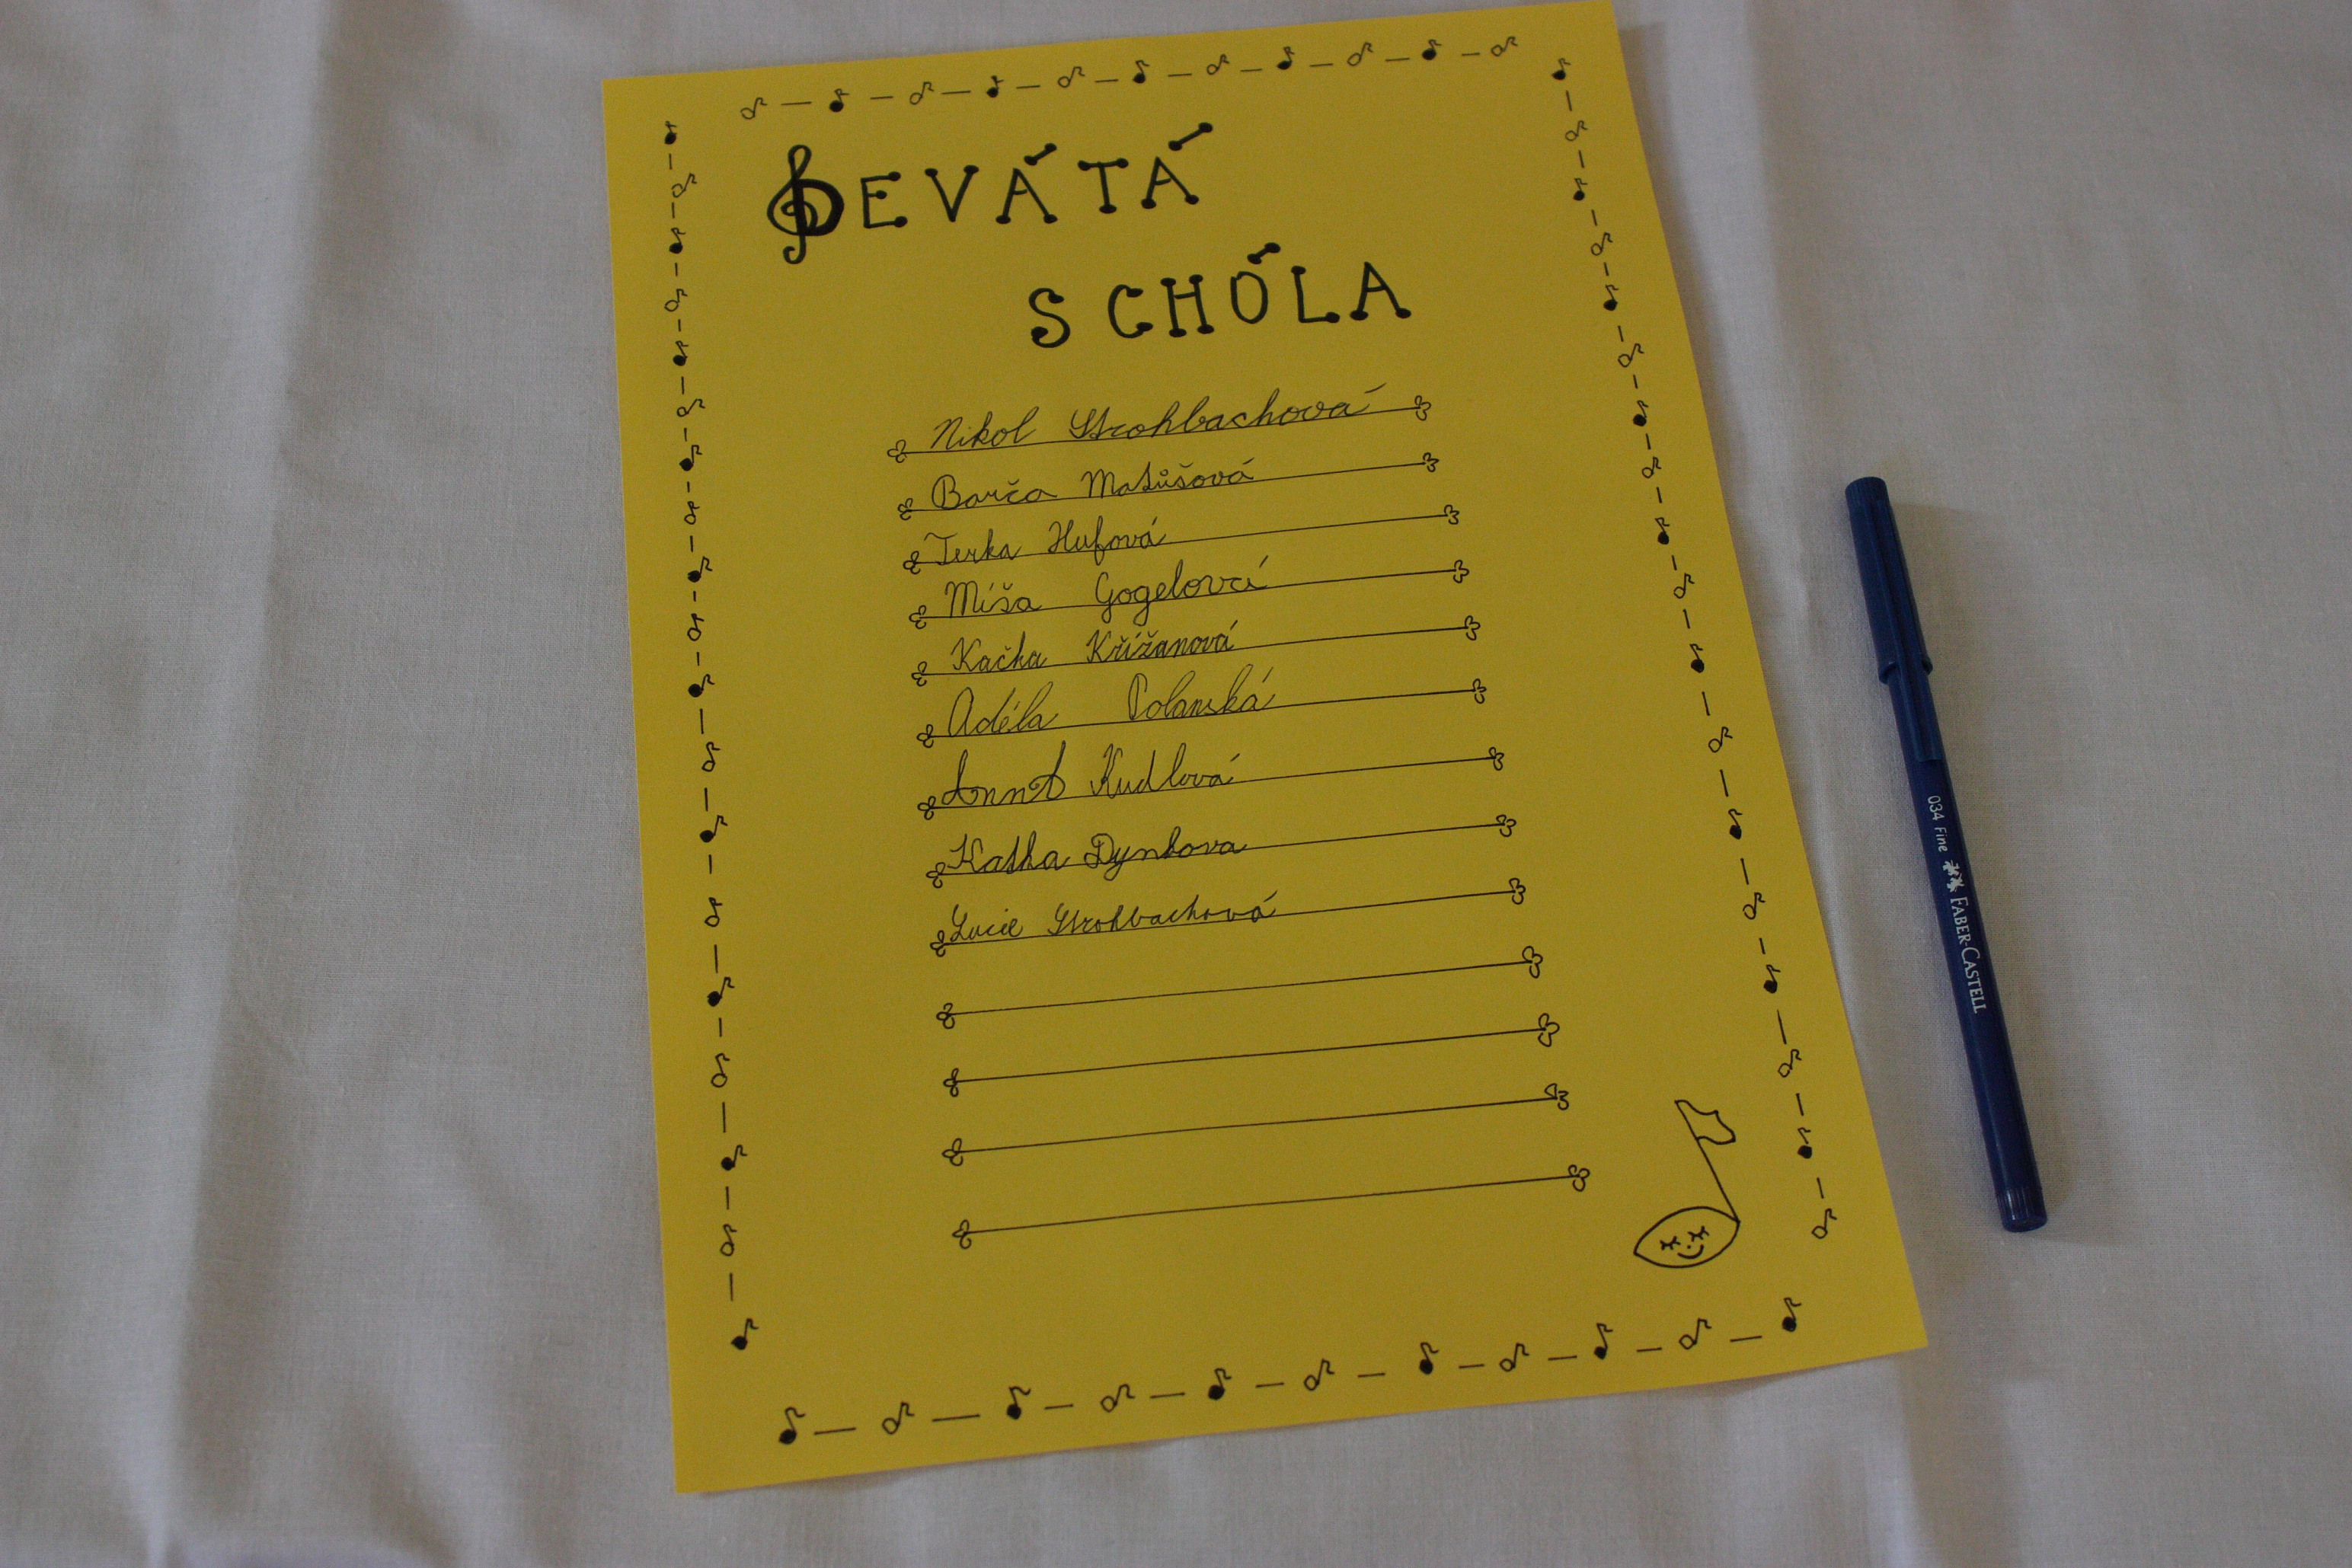 DEVÁTÁ
SCHÓLA
Nikol Strohbachová
Barča Matůšová
Terka Hufová
Míša Gogelová
Kačka Křížanová
Adéla Polanská
Anna Kudlová
Katka Dynkova
Lucie Strohbachová
034 Fine FABER-CASTELL